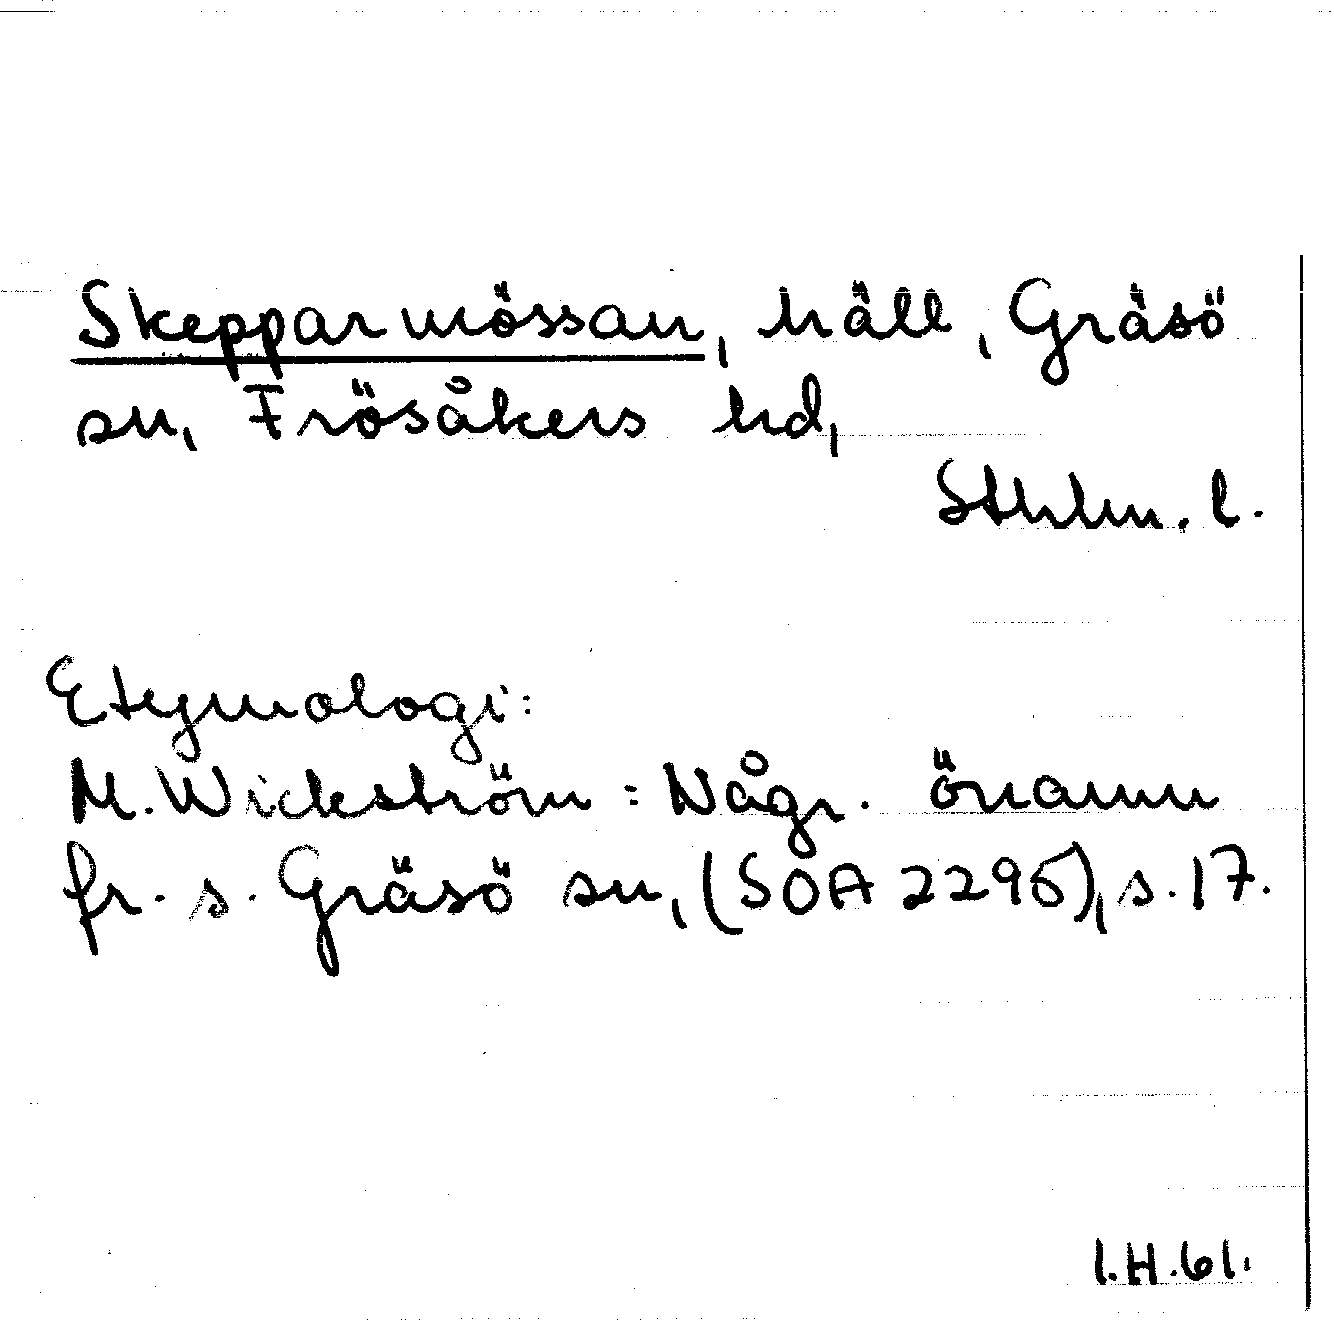 Skepparmössan, häll, Gräsö
sn, Frösåkers hd,
Sthlm. l.
Etymologi:
M. Wickström: Någr. önamn
fr. s. Gräsö sn, (SOA 2296), s. 17.
I.H.61.